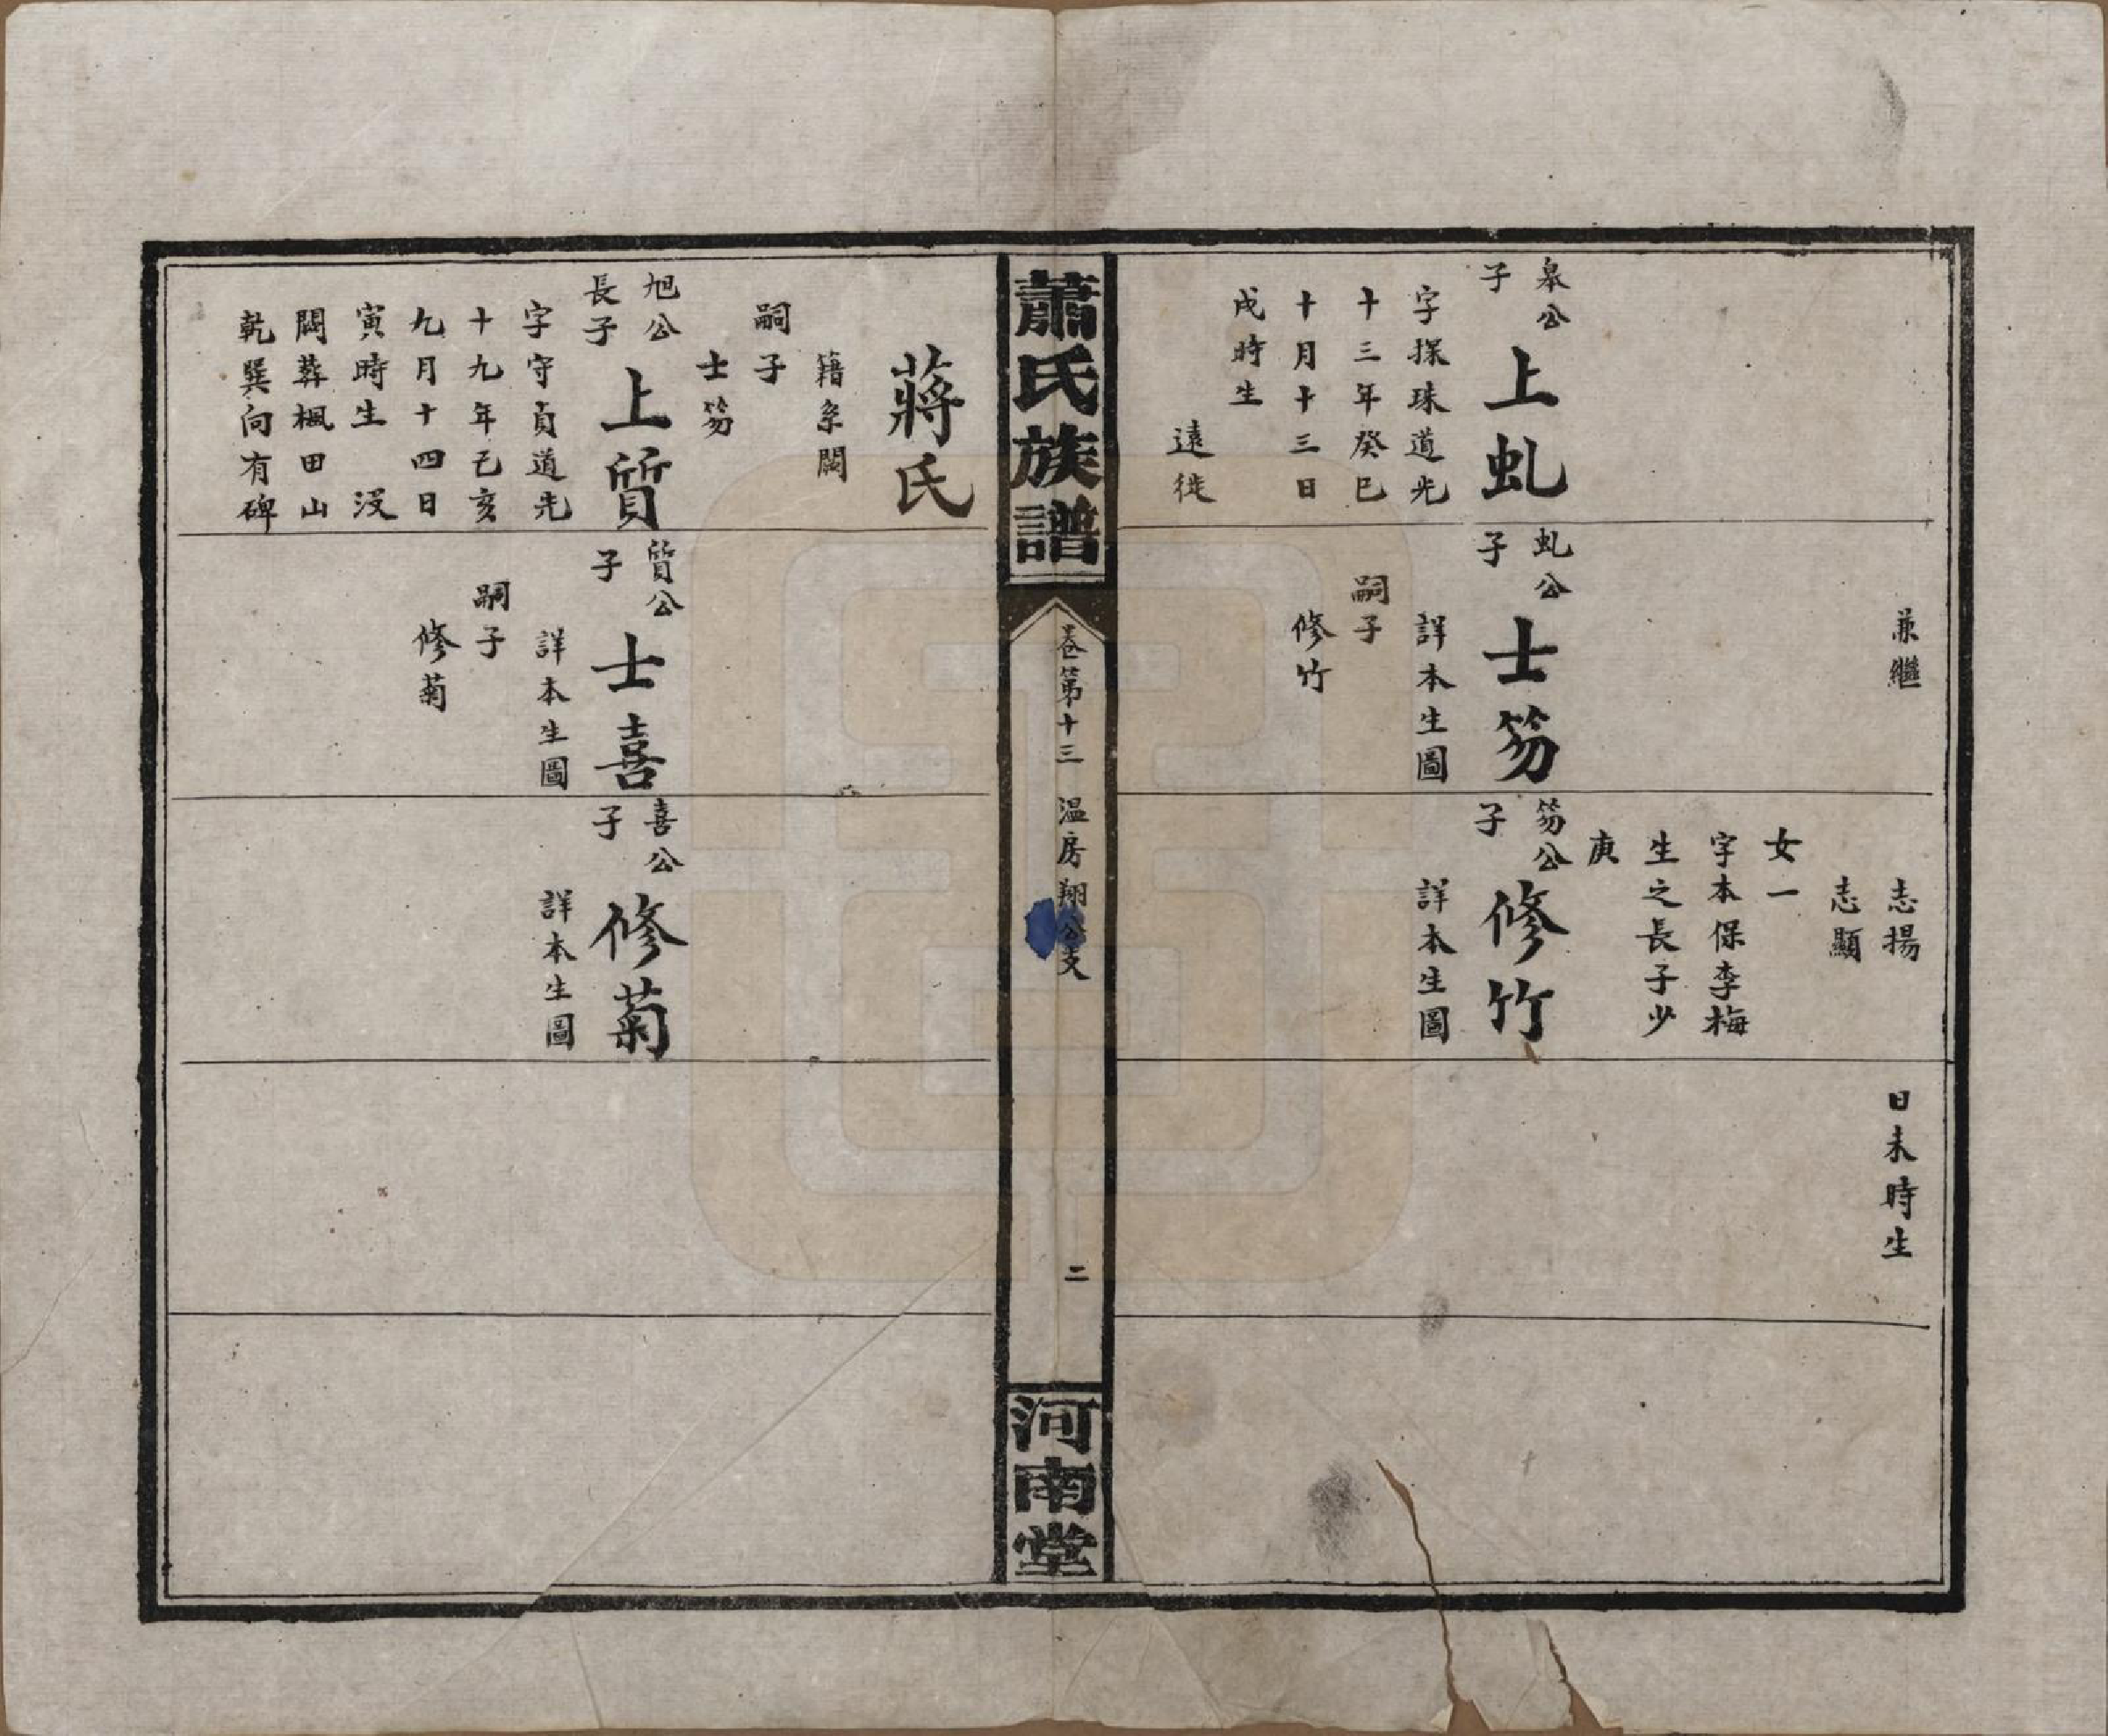 兼繼
志揚
志顯
女一
字本保李梅
生之長子少
庚
日未時生
皋公
子
上虬
字探珠道光
十三年癸巳
十月十三日
戌時生
遠徙
虬公
子
士笏
詳本生圖
嗣子
修竹
笏公
子
修竹
詳本生圖
蕭氏族譜
卷第十三 温房翔公支
二
河南堂
蔣氏
籍系闕
嗣子
士笏
旭公
長子
上質
字守貞道光
十九年己亥
九月十四日
寅時生 沒
闕葬楓田山
乾巽向有碑
質公
子
士喜
詳本生圖
嗣子
修菊
喜公
子
修菊
詳本生圖